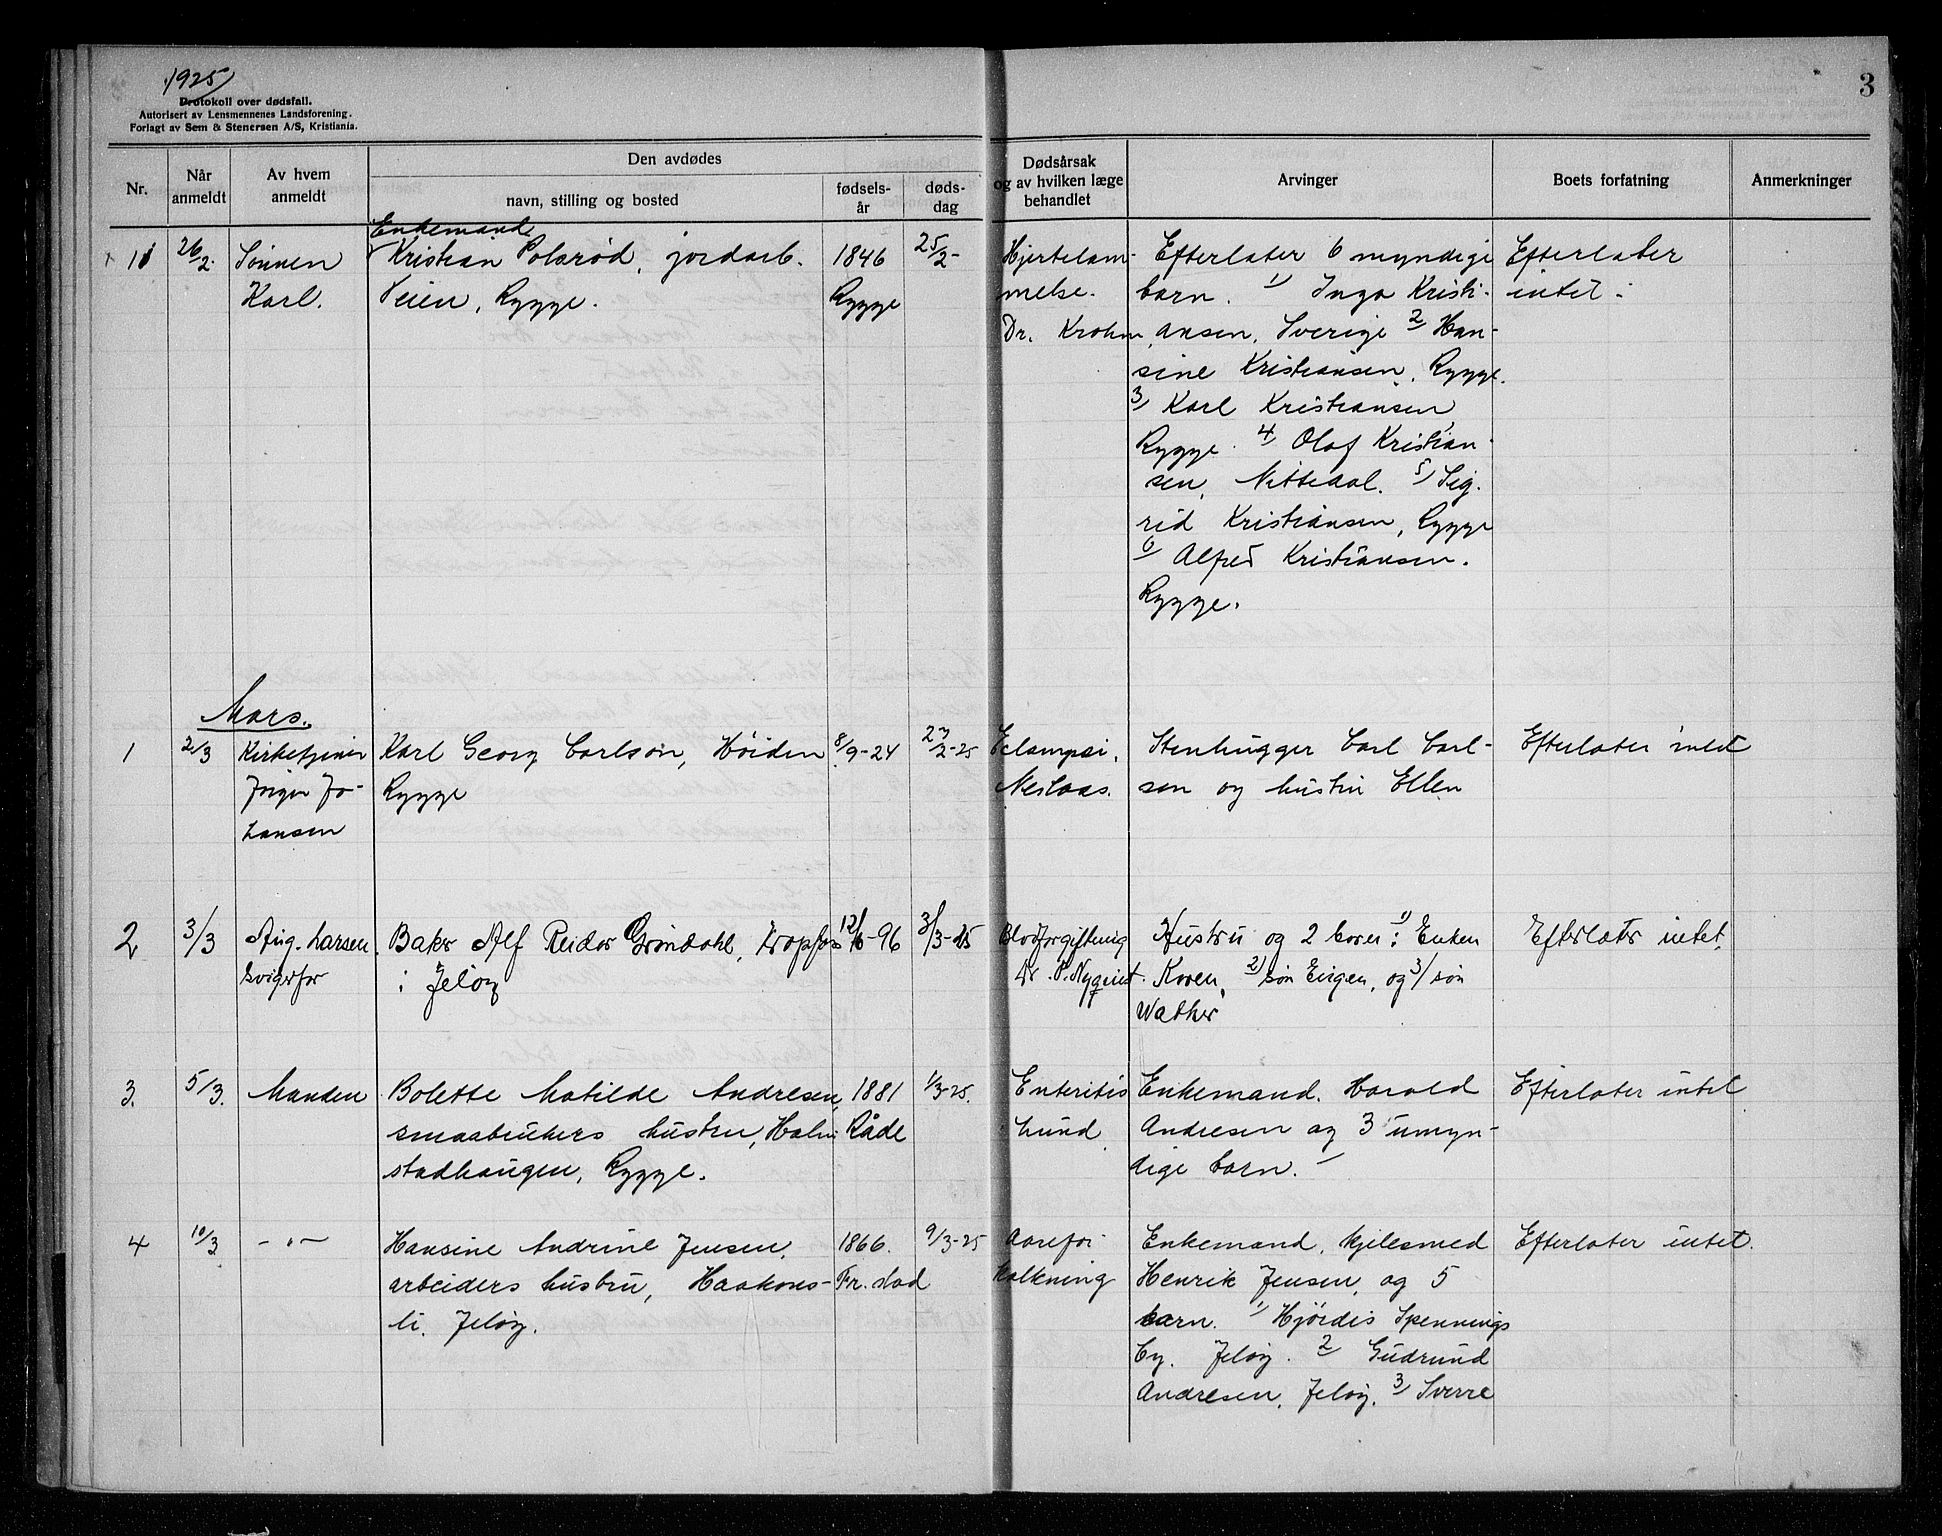 1925
3
Protokoll over dødsfall.
Autorisert av Lensmennenes Landsforening.
Forlagt av Sem & Stenersen A/S, Kristiania.
Nr.
Når anmeldt
Av hvem anmeldt
Den avdødes
navn, stilling og bosted
fødsels-år
døds-dag
Dødsårsak og av hvilken læge behandlet
Arvinger
Boets forfatning
Anmerkninger
11
26/2.
Sønnen
Karl.
Enkemand
Kristian Polsrød, jordarb.
Veien, Rygge.
1846
Rygge
25/2-
Hjertelam-
melse.
Dr. Krohn
Efterlater 6 myndige
barn. 1) Inga Kristi-
ansen, Sverige 2) Han-
sine Kristiansen, Rygge.
3) Karl Kristiansen
Rygge. 4) Olaf Kristian-
sen, Nittedal. 5) Sig-
rid Kristiansen, Rygge
6) Alfred Kristiansen.
Rygge.
Efterlater
intet.
Mars.
1
2/3
Kirketjener
Jørgen Jo-
hansen
Karl Georg Carlson, Høiden
Rygge
8/9-24
27/2-25
Eclampsi.
Neslaas.
Stenhugger Carl Carl-
son og hustru Ellen
Efterlater intet
2
3/3
Aug. Larsen
svigerfar
Baker Alf Reidar Grøndahl, Kropfos
i Jeløy
-96
3/3-25
Blodforgiftning
Dr. P. Nyquist.
Hustru og 2 barn: 1) Enken
Karen, 2) søn Eugen, og 3/ søn
Walther
Efterlater intet
3.
5/3.
Manden
Bolette Matilde Andresen,
smaabrukers hustru, Halm
stadhaugen, Rygge.
1881
Råde
1/3-25.
Enteritis
Lund
Enkemand. Harald
Andresen og 3 umyn-
dige barn. -
Efterlater intet
4
10/3
- " -
Hansine Andrine Jensen,
arbeiders hustru, Haakons-
li, Jeløy.
1866.
Fr. stad
9/3-25
Aarefor-
kalkning
Enkemand, kjelesmed
Henrik Jensen, og 5
barn. 1) Hjørdis Spennings
by. Jeløy. 2) Gudrund
Andresen, Jeløy. 3) Sverre
Efterlater intet.